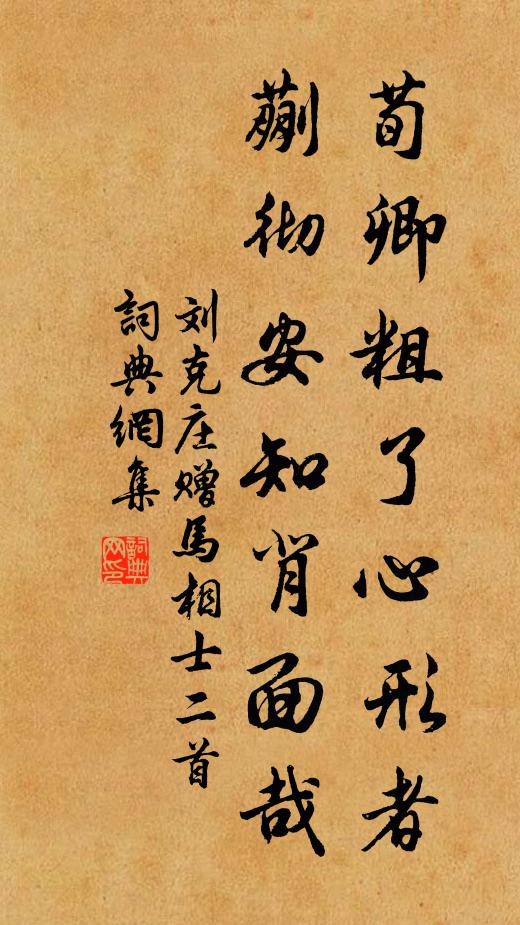 荀卿粗了心形者
蒯彻安知背面哉
刘克庄赠馬相士二首
詞典網集
詞典
网印